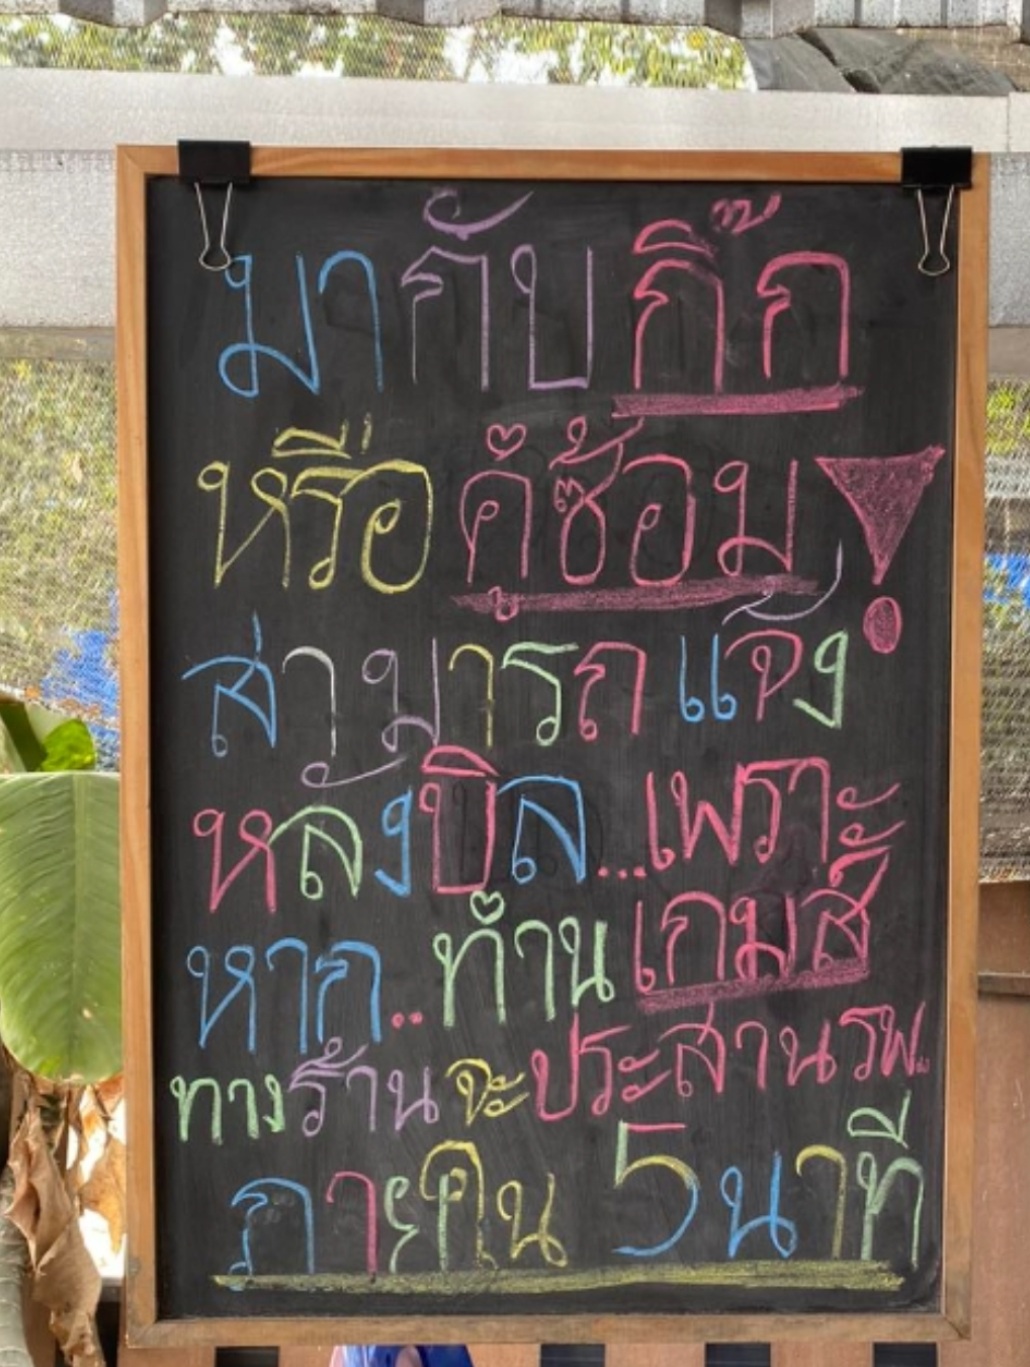 มากับกิ๊ก
หรือคู่ซ้อม!
สามารถแจ้ง
หลังบิล...เพราะ
หาก..ท่านเกมส์
ทางร้านจะประสานรพ..
ภายใน 5 นาที